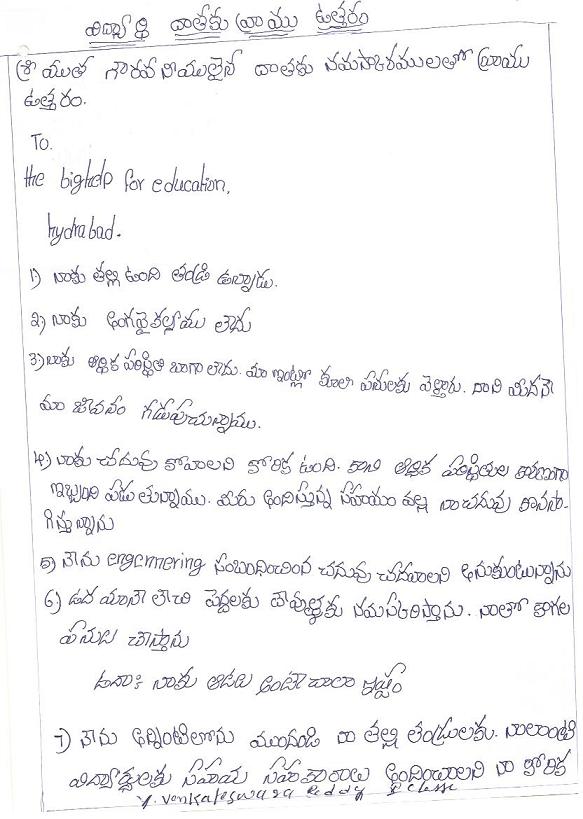 విద్యార్థి దాతకు వ్రాయు ఉత్తరం
శ్రీయుత గౌరవనీయులైన దాతకు నమస్కారములతో వ్రాయు
ఉత్తరం.
To.
the bighelp for education,
hydrabad.
1) నాకు తల్లి ఉంది తండ్రి ఉన్నాడు.
2) నాకు అంగవైకల్యము లేదు
3) నాకు ఆర్థిక పరిస్థితి బాగా లేదు. మా ఇంట్లో కూలి పనులకు వెళ్తారు. దాని మీదనే
మా జీవనం గడుపుచున్నాము.
4) నాకు చదువు కోవాలని కోరిక ఉంది. కాని ఆర్థిక పరిస్థితుల కారణంగా
ఇబ్బంది పడుతున్నాము. మీరు అందిస్తున్న సహాయం వల్ల నా చదువు కొనసా-
గిస్తున్నాను
5) నేను engennering సంబంధించిన చదువు చదవాలని అనుకుంటున్నాను
6) ఉదయానే లేచి పెద్దలకు దేవుళ్ళకు నమస్కరిస్తాను. నాతో కాగల
పనులు చేస్తాను
ఉదా: నాకు ఆటలు అంటే చాలా ఇష్టం
7) నేను అన్నింటిలోను ముందుండి నా తల్లి తండ్రులకు. నాలాంటి
విద్యార్థులకు సహాయ సహకారాలు అందించాలని నా కోరిక
y. venkateswara Reddy class